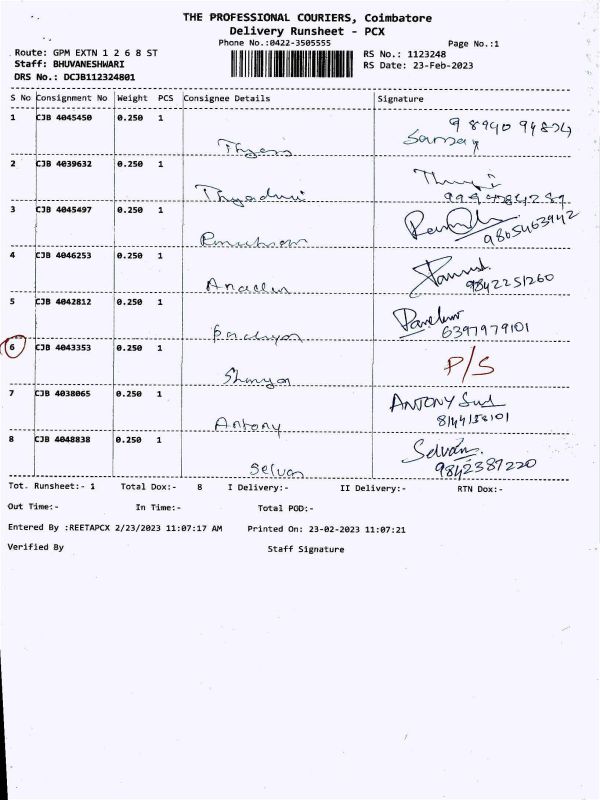 THE PROFESSIONAL COURIERS, Coimbatore
Delivery Runsheet - PCX
Phone No.:0422-3505555
Page No.:1
Route: GPM EXTN 1 2 6 8 ST
RS No.: 1123248
Staff: BHUVANESHWARI
RS Date: 23-Feb-2023
DRS No.: DCJB112324801
S No Consignment No Weight PCS Consignee Details Signature
1 CJB 4045450 0.250 1
2 CJB 4039632 0.250 1
3 CJB 4045497 0.250 1
9865463942
4 CJB 4046253 0.250 1
9842251260
5 CJB 4042812 0.250 1
6397979101
6 CJB 4043353 0.250 1 P/S
7 CJB 4038065 0.250 1 Antony ANTONY
8144158101
8 CJB 4048838 0.250 1 Selva Selvan.
9842387220
Tot. Runsheet:- 1 Total Dox:- 8 I Delivery:- II Delivery:- RTN Dox:-
Out Time:- In Time:- Total POD:-
Entered By :REETAPCX 2/23/2023 11:07:17 AM Printed On: 23-02-2023 11:07:21
Verified By Staff Signature